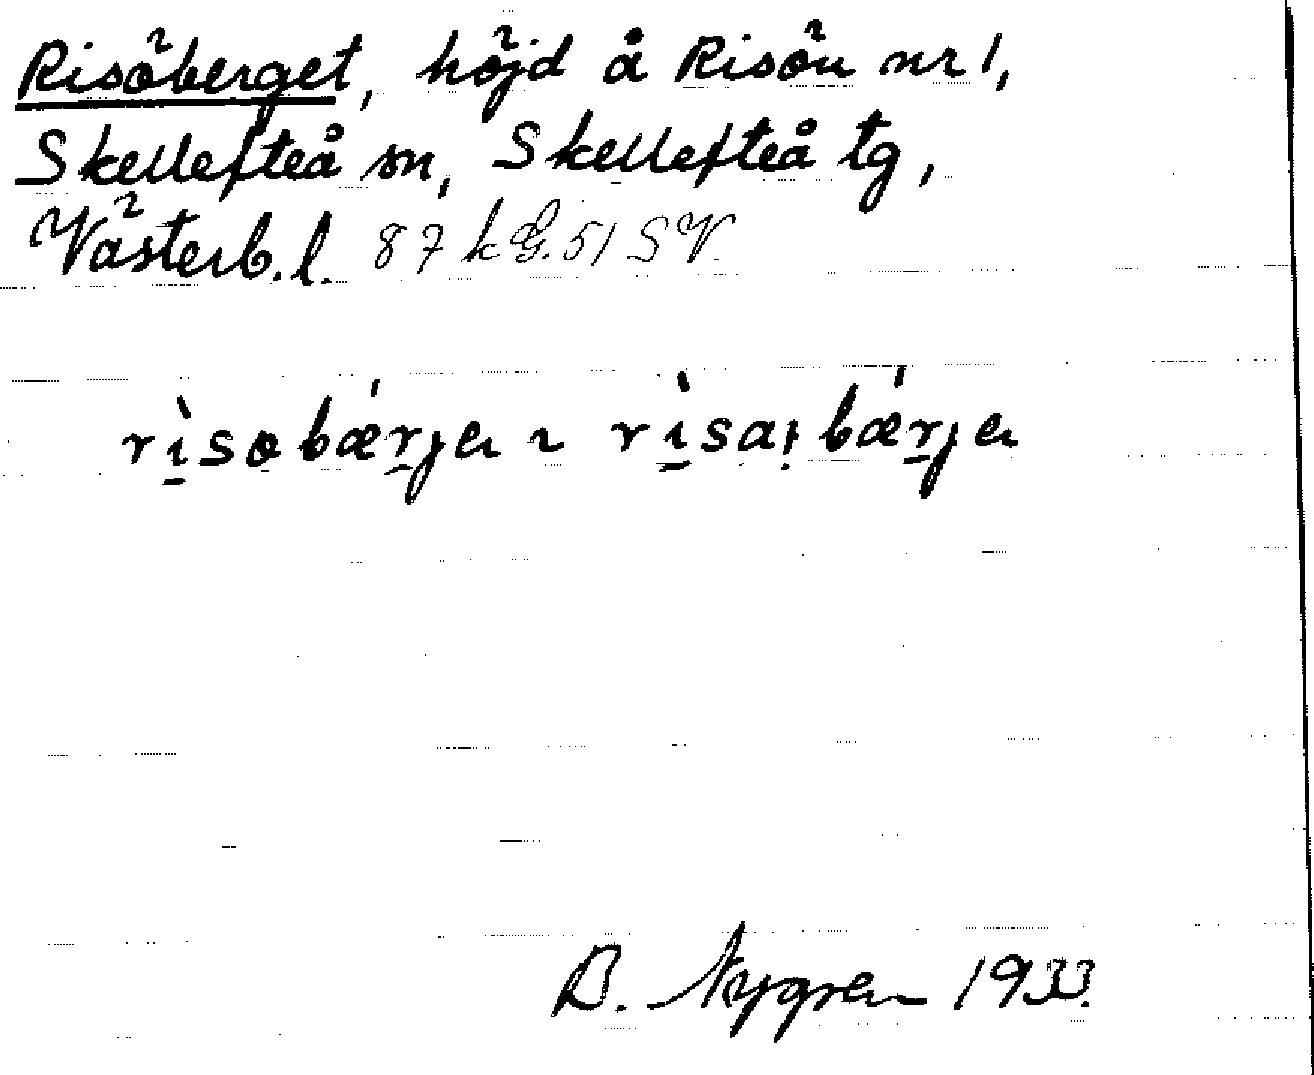 Risöberget, höjd å Risön nr 1,
Skellefteå sn, Skellefteå tg,
Västerb. l. 87 k G. 51 SV
rìsobǽrjen ~ rìsaꞁbǽrjen
B. Nygren 1933.